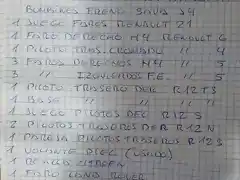 BOMBINES FRENO SAVA J4
1 JUEGO FAROS RENAULT 21
1 FARO DERECHO M4 RENAULT 6
1 PILOTO TRAS. CROMADO " 4
3 FAROS DERECHOS M4 " 5
3 " IZQUIERDOS F.E. " 5
1 PILOTO TRASERO DER R12 TS
1 BASE " " " "
1 JUEGO PILOTOS DEL R12 S
2 PILOTOS TRASEROS DER R12 N
1 PAREJA PILOTOS TRASEROS R12 S
1 VOLANTE (USADO)
1
1 FARO